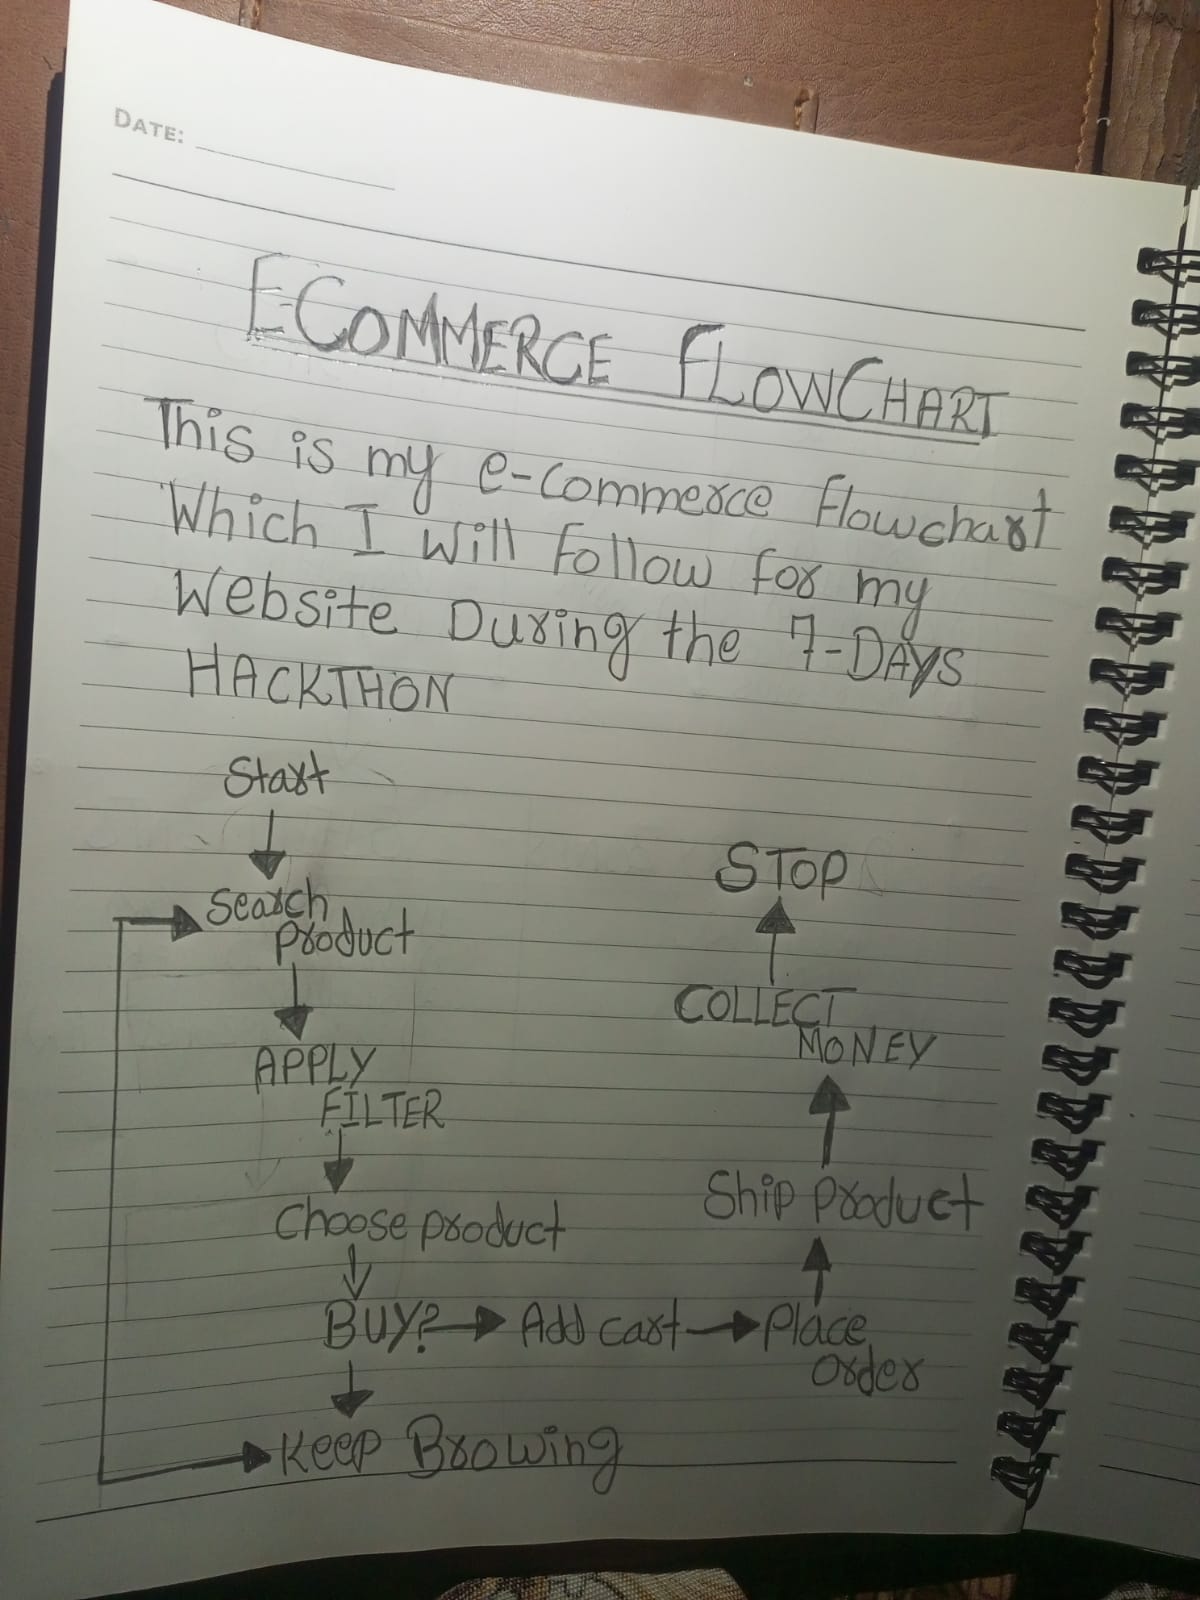 DATE:
E-COMMERCE FLOWCHART
This is my e-commerce flowchart
Which I will follow for my
Website During the 7-DAYS
HACKTHON
Start
Search
product
APPLY
FILTER
Choose product
BUY? Add cart Place
order
Keep Browing
STOP
COLLECT
MONEY
Ship product